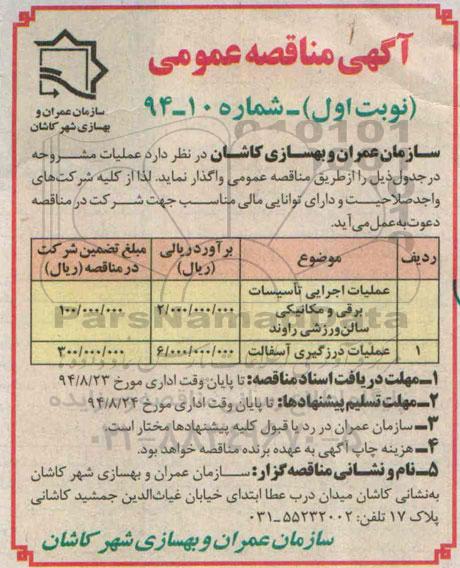 آگهی مناقصه عمومی
سازمان عمران و
بهسازی شهر کاشان
(نوبت اول) ـ شماره ۱۰ـ۹۴
سازمان عمران و بهسازی کاشان در نظر دارد عملیات مشروحه
در جدول ذیل را از طریق مناقصه عمومی واگذار نماید. لذا از کلیه شرکت‌های
واجد صلاحیت و دارای توانایی مالی مناسب جهت شرکت در مناقصه
دعوت به عمل می‌آید.
ردیف موضوع برآورد ریالی (ریال) مبلغ تضمین شرکت در مناقصه (ریال)
عملیات اجرایی تأسیسات
برقی و مکانیکی ۲/۰۰۰/۰۰۰/۰۰۰ ۱۰۰/۰۰۰/۰۰۰
سالن ورزشی راوند
۱ عملیات درزگیری آسفالت ۶/۰۰۰/۰۰۰/۰۰۰ ۳۰۰/۰۰۰/۰۰۰
۱ـ مهلت دریافت اسناد مناقصه: تا پایان وقت اداری مورخ ۹۴/۸/۲۳
۲ـ مهلت تسلیم پیشنهادها: تا پایان وقت اداری مورخ ۹۴/۸/۲۴
۳ـ سازمان عمران در رد یا قبول کلیه پیشنهادها مختار است.
۴ـ هزینه چاپ آگهی به عهده برنده مناقصه خواهد بود.
۵ـ نام و نشانی مناقصه گزار: سازمان عمران و بهسازی شهر کاشان
به‌نشانی کاشان میدان درب عطا ابتدای خیابان غیاث‌الدین جمشید کاشانی
پلاک ۱۷ تلفن: ۵۵۲۳۲۰۰۲ـ۰۳۱
سازمان عمران و بهسازی شهر کاشان
ParsNamadData
۰۲۱-۸۸۳۴۹۶۷۰-۵